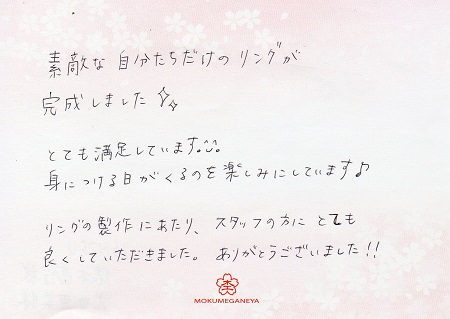 素敵な自分たちだけのリングが
完成しました✨
とても満足しています。^^
身につける日がくるのを楽しみにしています♪
リングの製作にあたり、スタッフの方にとても
良くしていただきました。ありがとうございました!!
杢
MOKUMEGANEYA